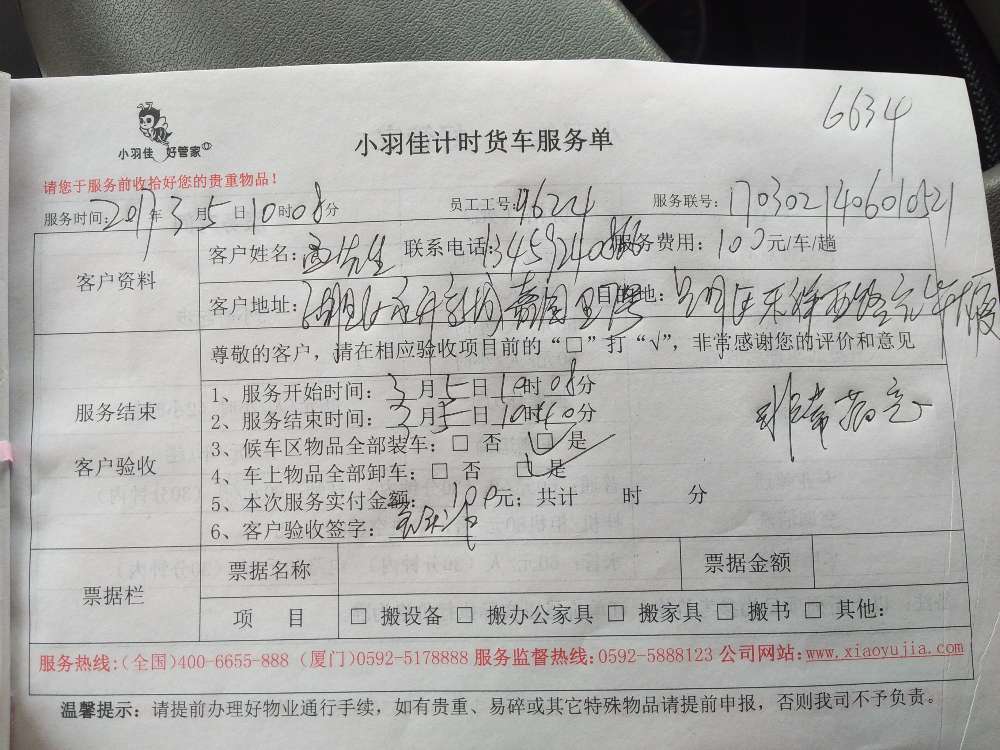 6634
小羽佳 好管家
小羽佳计时货车服务单
请您于服务前收拾好您的贵重物品！
服务时间：2017年3月5日10时08分 员工工号：9624 服务联号：1703021406010521
客户资料
客户姓名：先生 联系电话： 服务费用：100元/车/趟
客户地址： 目的地：
尊敬的客户，请在相应验收项目前的“□”打“√”，非常感谢您的评价和意见
服务结束
客户验收
1、服务开始时间：3月5日10时08分
2、服务结束时间：3月5日10时40分
3、候车区物品全部装车：□ 否 □ 是
4、车上物品全部卸车：□ 否 □ 是
5、本次服务实付金额：100元；共计 时 分
6、客户验收签字：
非常满意
票据栏
票据名称 票据金额
项 目 □ 搬设备 □ 搬办公家具 □ 搬家具 □ 搬书 □ 其他：
服务热线:(全国)400-6655-888 (厦门)0592-5178888 服务监督热线:0592-5888123 公司网站:www.xiaoyujia.com
温馨提示：请提前办理好物业通行手续，如有贵重、易碎或其它特殊物品请提前申报，否则我司不予负责。